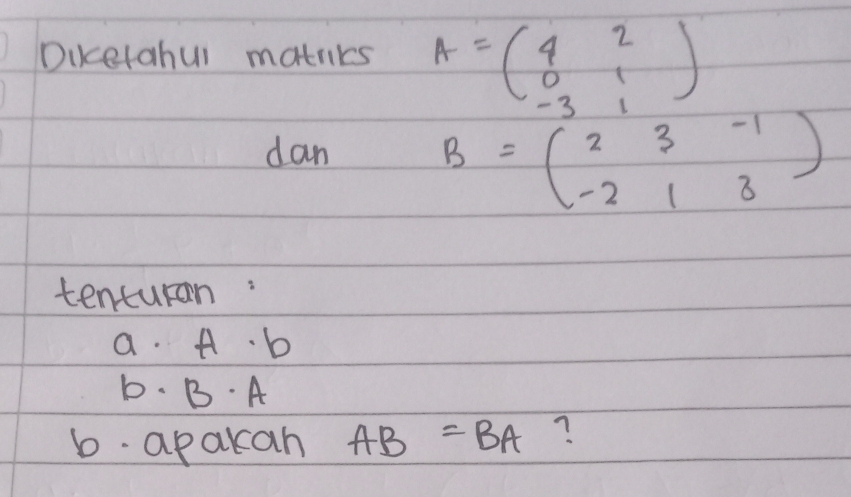 Diketahui matriks A = ( 4 2
0 1
-3 1 )
dan B = ( 2 3 -1
-2 1 3 )
tentukan :
a. A . b
b. B . A
b. apakah AB = BA ?